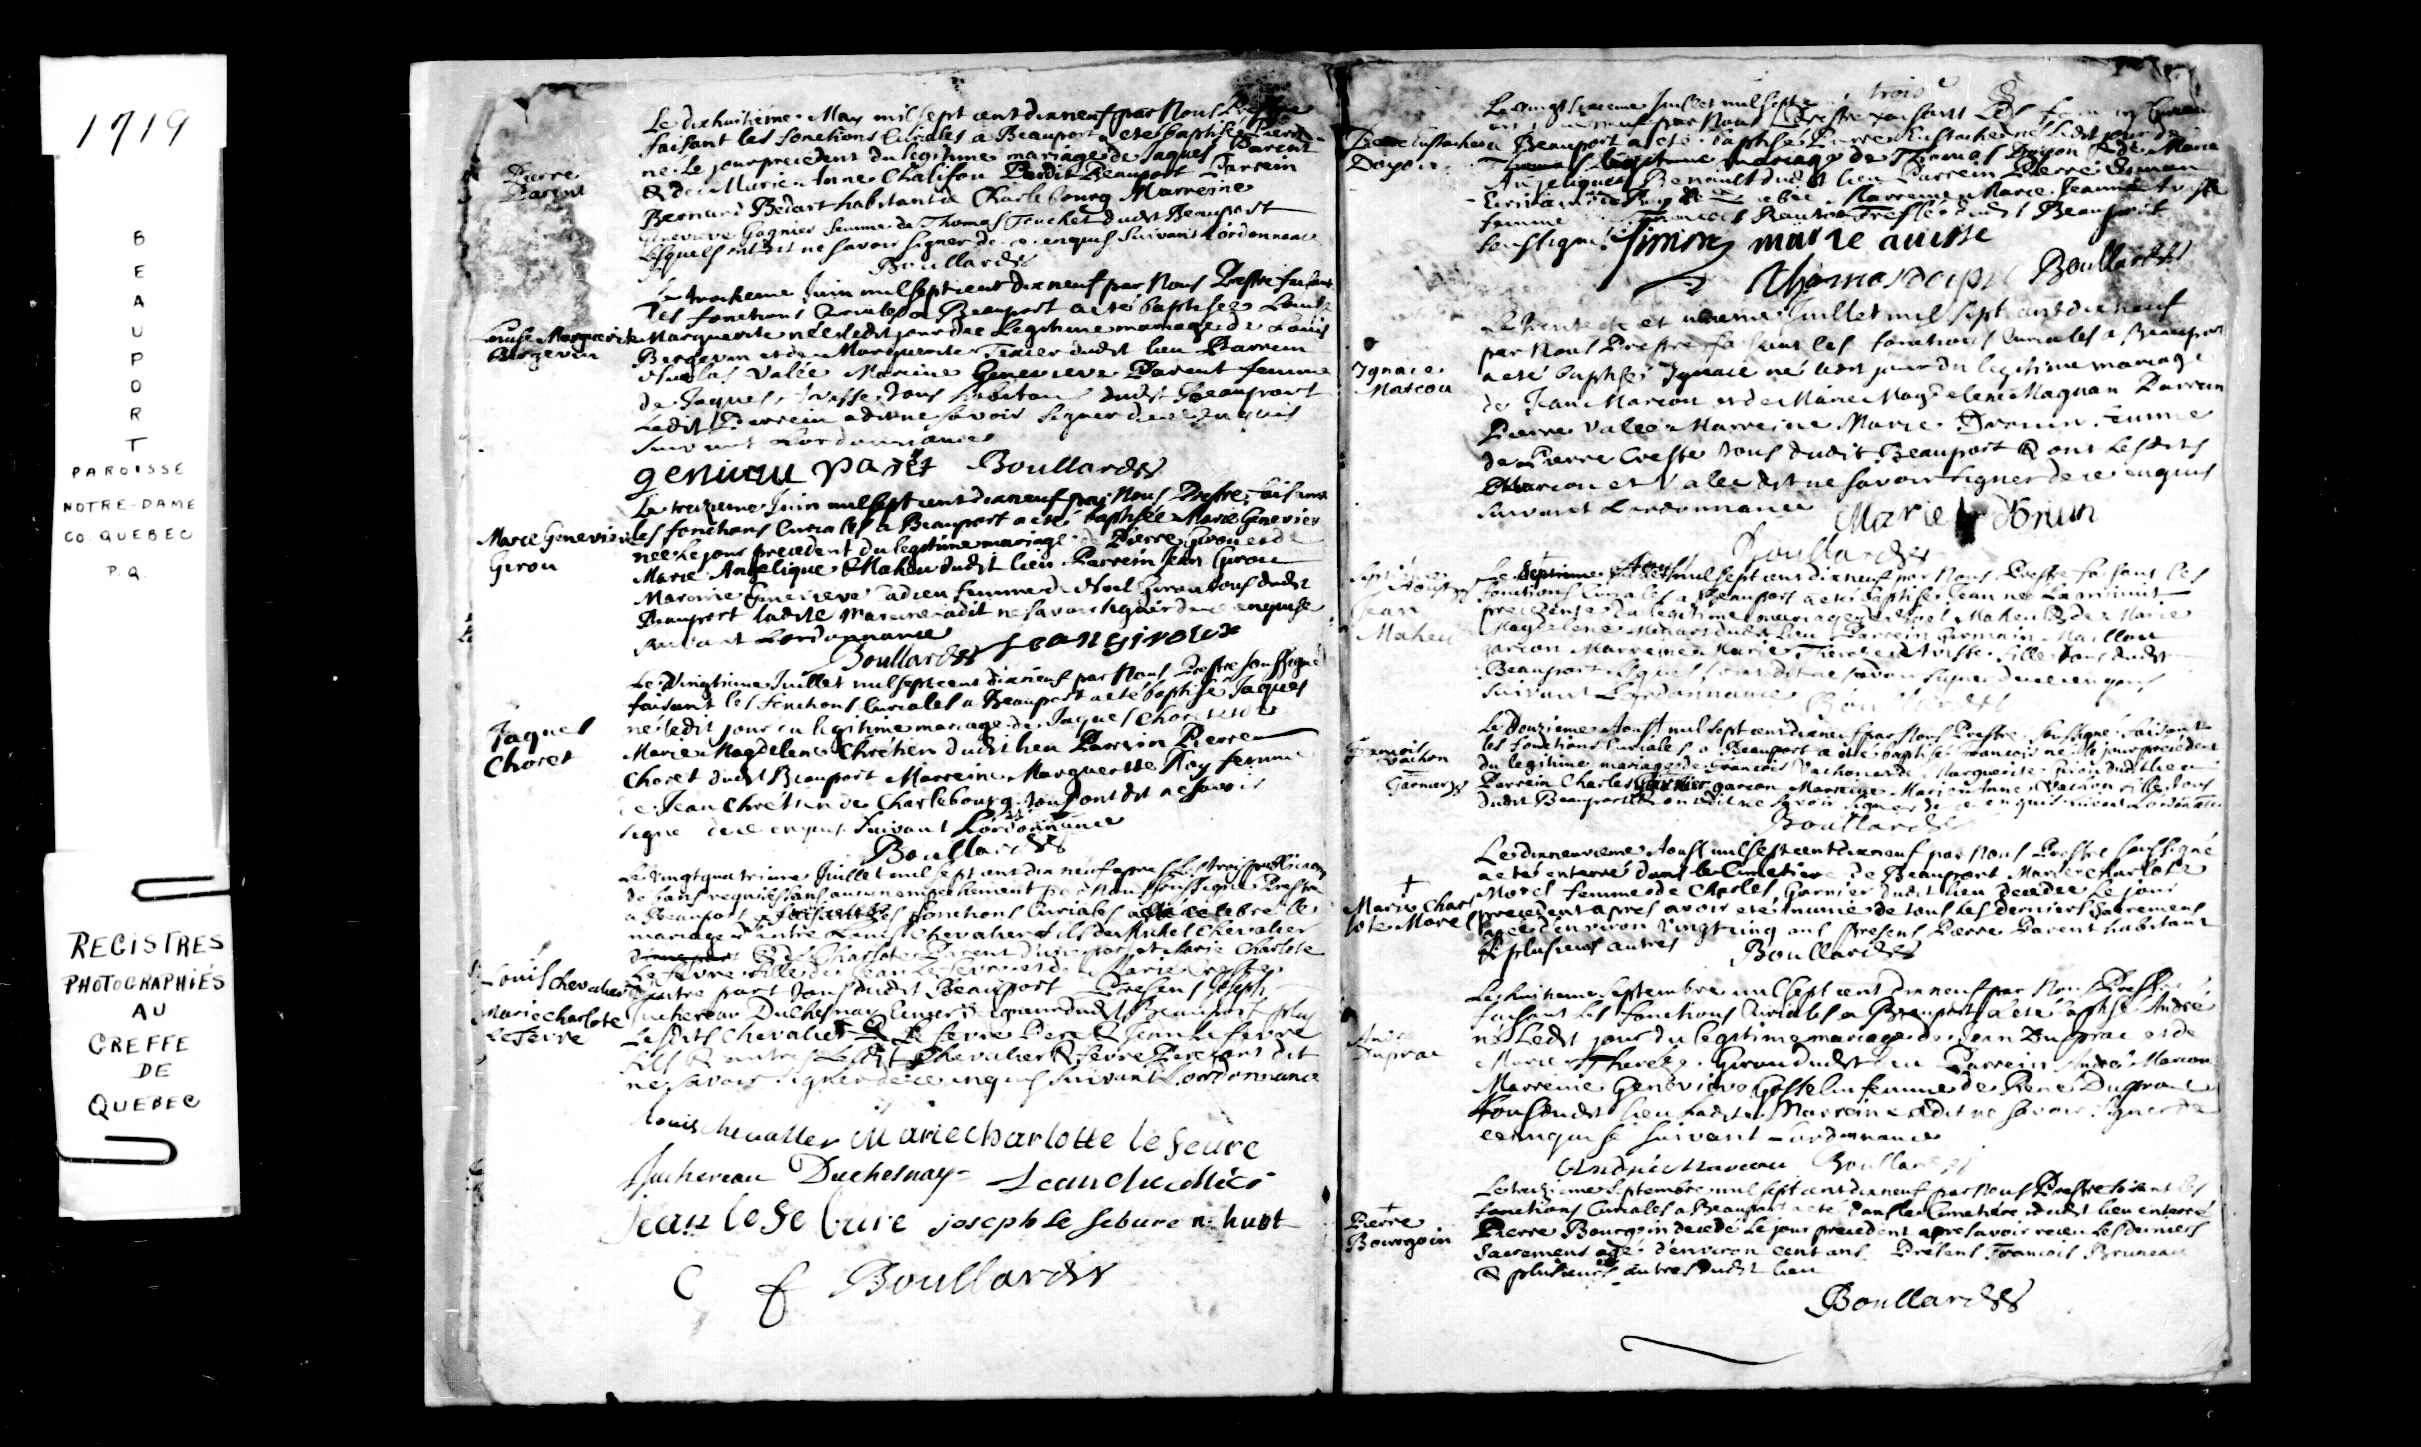 1719
BEAUPORT
PAROISSE
NOTRE-DAME
CO. QUEBEC
P.Q.
REGISTRES
PHOTOGRAPHIÉS
AU
GREFFE
DE
QUEBEC
Pierre
Parent
Le dixhuitième May mil sept cent dixneuf par Nous Prestre
faisant les fonctions Curiales a Beauport a eté baptisé Pierre
né Le jour precedent du legitime mariage de Jaques Parent
& de Marie Anne Chalifou Dudit Beauport Parrein
Bernard Bedart habitant a Charlebourg Marreine
Genevieve Gagnier femme de Thomas Touchet dudit Beauport
Lesquels ont dit ne savoir signer de ce enquis suivant l'ordonnance
Boullard
Louise Marguerite
Bergevin
Le troisieme Juin mil sept cent dixneuf par Nous Prestre faisant
les fonctions Curiales a Beauport a eté baptisée Louise
Marguerite née ledit jour du Legitime mariage de Louis
Bergevin et de Marguerite Texier dudit lieu Parrein
Nicolas Valée Mareine Genevieve Parent femme
de Jaques Avisse tous habitans dudit Beauport
Ledit Parrein a dit ne savoir signer de ce enquis
suivant L'ordonnance
Boullard
Marie Genevieve
Girou
Le treizieme Juin mil sept cent dixneuf par Nous Prestre faisant
les fonctions Curiales a Beauport a eté baptisée Marie Genevieve
née Le jour precedent du legitime mariage de Pierre Girou et de
Marie Angelique Maheu dudit lieu Parrein Jean Girou
Mareine Genevieve Cadieu femme de Noel Girou tous dudit
Beauport ladite Mareine a dit ne savoir signer de ce enquise
suivant L'ordonnance
Boullard Jean giroux
Jaques
Choret
Le Vingtieme Juillet mil sept cent dixneuf par Nous Prestre soussigné
faisant les fonctions Curiales a Beauport a eté baptisé Jaques
né ledit jour du legitime mariage de Jaques Choret et de
Marie Magdelene Chrétien dudit lieu Parrein Pierre
Choret dudit Beauport Marreine Marguerite Roy femme
de Jean Chrétien de Charlebourg tous ont dit ne savoir
signer de ce enquis suivant L'ordonnance
Boullard
Louis Chevalier
Marie Charlote
Le Fevre
Le Vingtquatrieme Juillet mil sept cent dixneuf apres Les trois publications
de bans requises sans aucun empechement par Nous soussigné Prestre
a Beauport faisant les fonctions Curiales a eté celebré le
mariage entre Louis Chevalier fils de Michel Chevalier
& de Charlote Parent d'une part et Marie Charlote
Le fevre fille de Jean Le fevre et de Marie
d'autre part tous dudit Beauport Presens Joseph
Juchereau Duchesnay dudit Beauport
Lesdits Chevalier & Le fevre Pere & Jean Le fevre
fils & autres Ledit Chevalier & Fevre Pere ont dit
ne savoir signer de ce enquis suivant L'ordonnance
Louis chevallier Marie charlotte le feure
Juchereau Duchesnay
Jean le febure joseph le febure n. huot
Boullard
Doyon
Beauport a eté baptisé Pierre Eustache né ledit jour du
legitime mariage de Thomas Doyon & de Marie
Angelique Renault dudit lieu Parrein Pierre Simon
femme
soussigné Simon marie avisse
Boullard
Ignace
Marcou
Le trente et unieme Juillet mil sept cent dixneuf
par Nous Prestre faisant les fonctions Curiales a Beauport
a eté baptisé Ignace né ledit jour du legitime mariage
de Jean Marcou et de Marie Magdelene Magnan Parrein
Pierre Valée Marreine Marie Brunn femme
de Pierre Creste tous dudit Beauport & ont Lesdits
Marcou et Valée dit ne savoir signer de ce enquis
suivant L'ordonnance
Boullard
Jean
Maheu
Le Septieme Aoust mil sept cent dixneuf par Nous Prestre faisant les
fonctions Curiales a Beauport a eté baptisé Jean né
du legitime mariage de Noel Maheu & de Marie
Magdelene dudit lieu Parrein Germain Maillou
garcon Marreine Marie Therese Avisse fille tous dudit
Beauport Lesquels ont dit ne savoir signer de ce enquis
suivant L'ordonnance
Boullard
Francois
Vachon
Le Douzieme Aoust mil sept cent dixneuf par Nous Prestre soussigné faisant
les fonctions Curiales a Beauport a eté baptisé Francois né le jour precedent
du legitime mariage de Francois Vachon et de Marguerite Girou dudit lieu
Parrein Charles Garnier garcon Mareine Marie Anne Vachon fille tous
dudit Beauport & ont dit ne savoir signer de ce enquis suivant L'ordonnance
Boullard
Marie Char
lote Morel
Le dixneuvieme Aoust mil sept cent dixneuf par Nous Prestre soussigné
a eté enterré dans le Cimetiere de Beauport Marie Charlote
Morel femme de Charles Garnier dudit lieu decedée Le jour
precedent apres avoir eté munie de tous les derniers Sacremens
agée d'environ Vingt cinq ans Presens Pierre Parent habitant
& plusieurs autres Boullard
André
Duprac
Le huitieme Septembre mil sept cent dixneuf par Nous Prestre
faisant les fonctions Curiales a Beauport a eté baptisé André
né Ledit jour du legitime mariage de Jean Duprac et de
Marie Therese Girou dudit lieu Parrein André Marcou
Marreine Genevieve Gosselin femme de Duprac
tous dudit lieu Ladite Marreine a dit ne savoir signer de
ce enquise suivant L'ordonnance
Boullard
Pierre
Bourgoin
Le treizieme Septembre mil sept cent dixneuf par Nous Prestre faisant les
fonctions Curiales a Beauport a eté dans le Cimetiere dudit lieu enterré
Pierre Bourgoin decedé Le jour precedent apres avoir receu Les derniers
Sacremens agé d'environ cent ans Présens Francois Bruneau
& plusieurs autres dudit lieu
Boullard